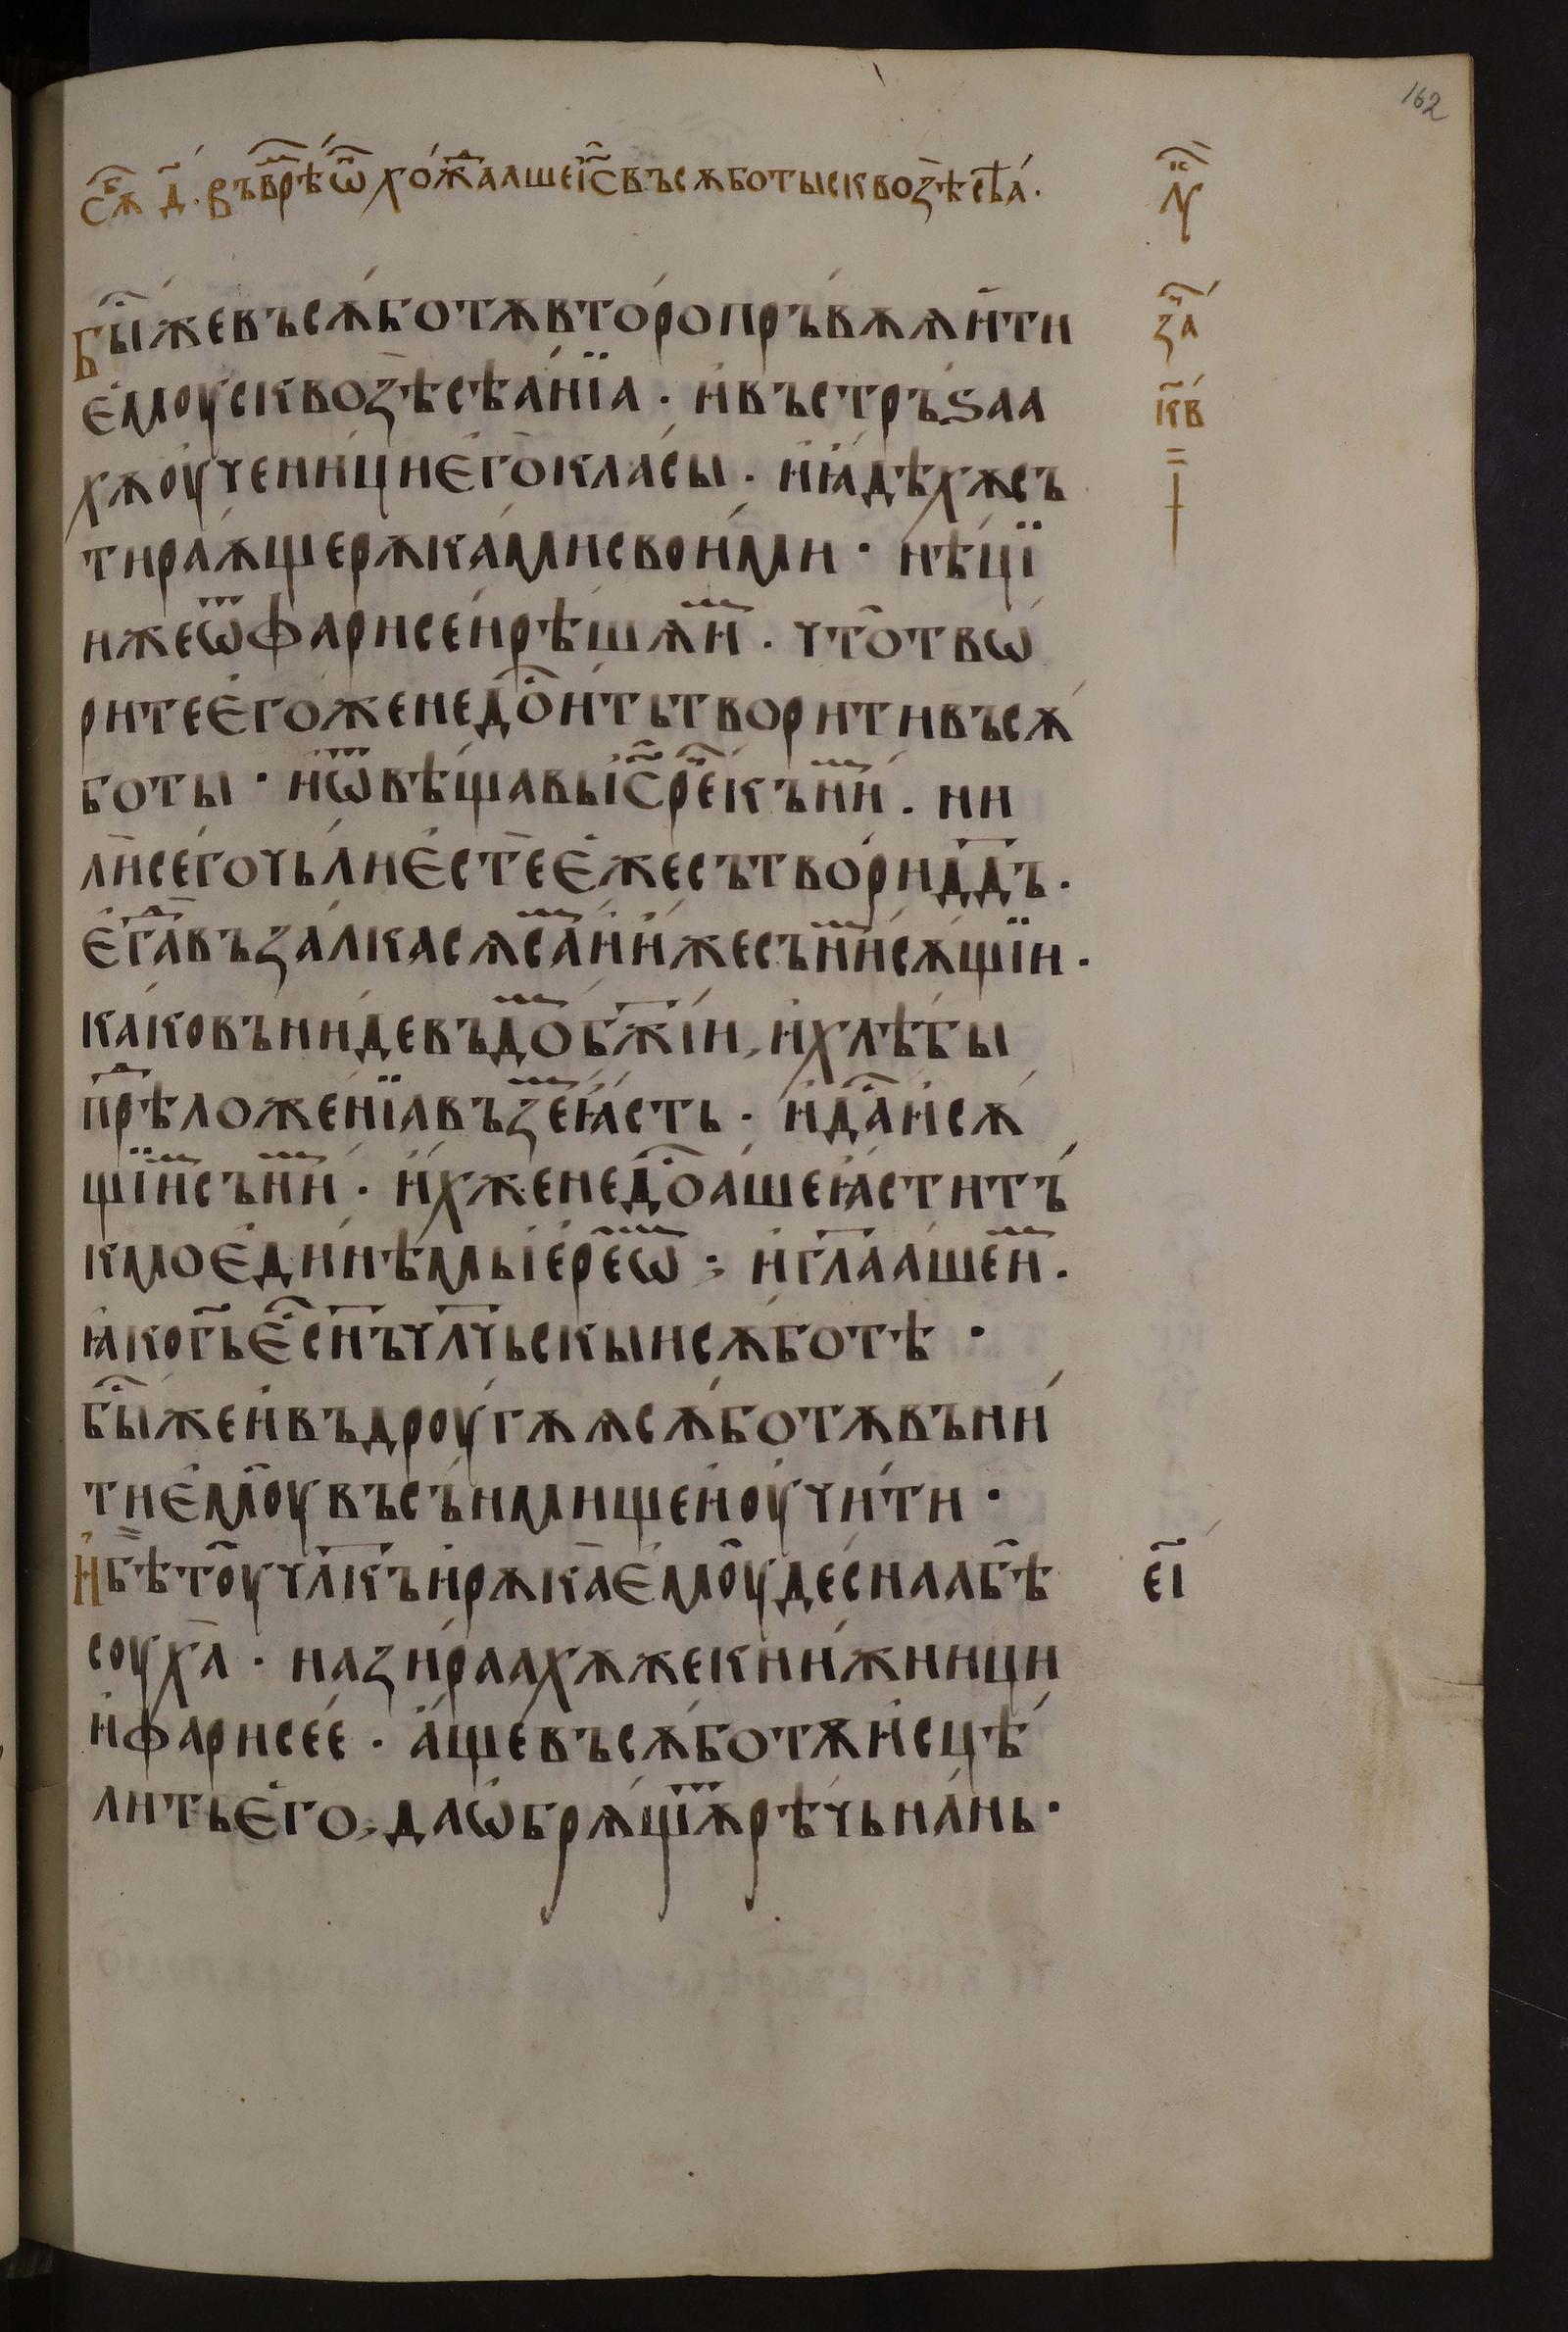 162
сѫⷠ҇ д҃. въ врѣⷨ҇ ѡ҆ⷩ҇ хожⷣааше і҆с҃ въ сѫботы сквоꙁѣ сѣⷶ҇а.
лꙋⷦ҇
Бы҇ же въ сѫботѫ второпръвѫѫ и҆ти
ꙁаⷱ҇
є҆моу сквоꙁѣ сѣанїа · и҆ въстръꙃаа
к҃в
хѫ оу҆ченици є҆го класы · и҆ ꙗ҆дѣхѫ съ
тираѫще рѫками своими · нѣцїи
же ѿ фарисеи рѣшѫ иⷨ · что тво
рите є҆гоже не доⷭ҇итъ творити въ сѫ
боты · и҆ ѿвѣщавь і҆с҃ речⷷ҇ къ ниⷨ · ни
ли сего чьли є҆сте є҆же сътвори дад҃ъ ·
є҆гⷣа въꙁалка сѧ саⷨ и҆ и҆же съ ниⷨ сѫщїи ·
како въниде въ доⷨ бж҃їи, и҆ хлѣбы
прⷣѣложенїа въꙁеⷨ ꙗ҆сть · и҆ даⷭ҇ и҆ сѫ
щїиⷨ съ ниⷨ · и҆хже не доⷭ҇аше ꙗ҆сти тъ
кмо є҆динѣмь і҆ереѡⷨ · и҆ гл҃ааше иⷨ ·
ꙗ҆ко гь҃ є҆ⷭ҇ сн҃ъ чл҃чьскыи сѫботѣ ·
бы҇ же и҆ въ дроугѫѫ сѫботѫ въни
ти є҆моу въ сънмище и҆ оу҆чити ·
И҆ бѣ тоу чл҃къ и҆ рѫка є҆моу деснаа бѣ
е҃і
соуха · наꙁираахѫ же книжници
и҆ фарисее · аще въ сѫботѫ и҆сцѣ
лить є҆го, да ѡ҆брѧщѫⷮ рѣчь на нь ·